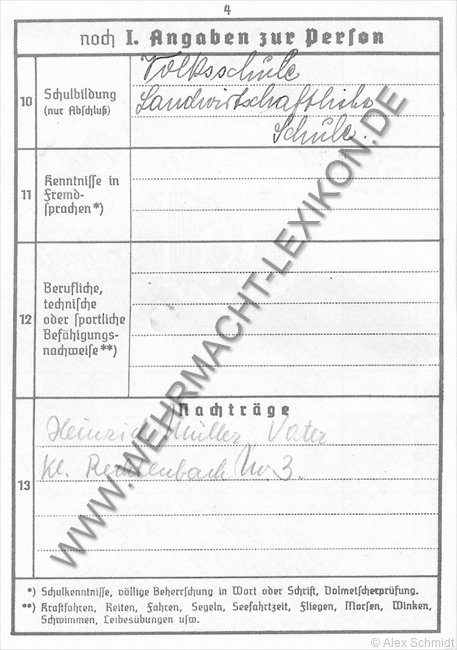 4
noch I. Angaben zur Person
10
Schulbildung
(nur Abschluß)
Volksschule
Landwirtschaftliche
Schule.
11
Kenntnisse in
Fremd-
sprachen*)
12
Berufliche,
technische
oder sportliche
Befähigungs-
nachweise**)
13
Nachträge
Heinrich Müller, Vater
Kl. Rechtenbach Nr. 3.
*) Schulkenntnisse, völlige Beherrschung in Wort oder Schrift, Dolmetscherprüfung.
**) Kraftfahren, Reiten, Fahren, Segeln, Seefahrtzeit, Fliegen, Morsen, Winken,
Schwimmen, Leibesübungen usw.
WWW.WEHRMACHT-LEXIKON.DE
© Alex Schmidt